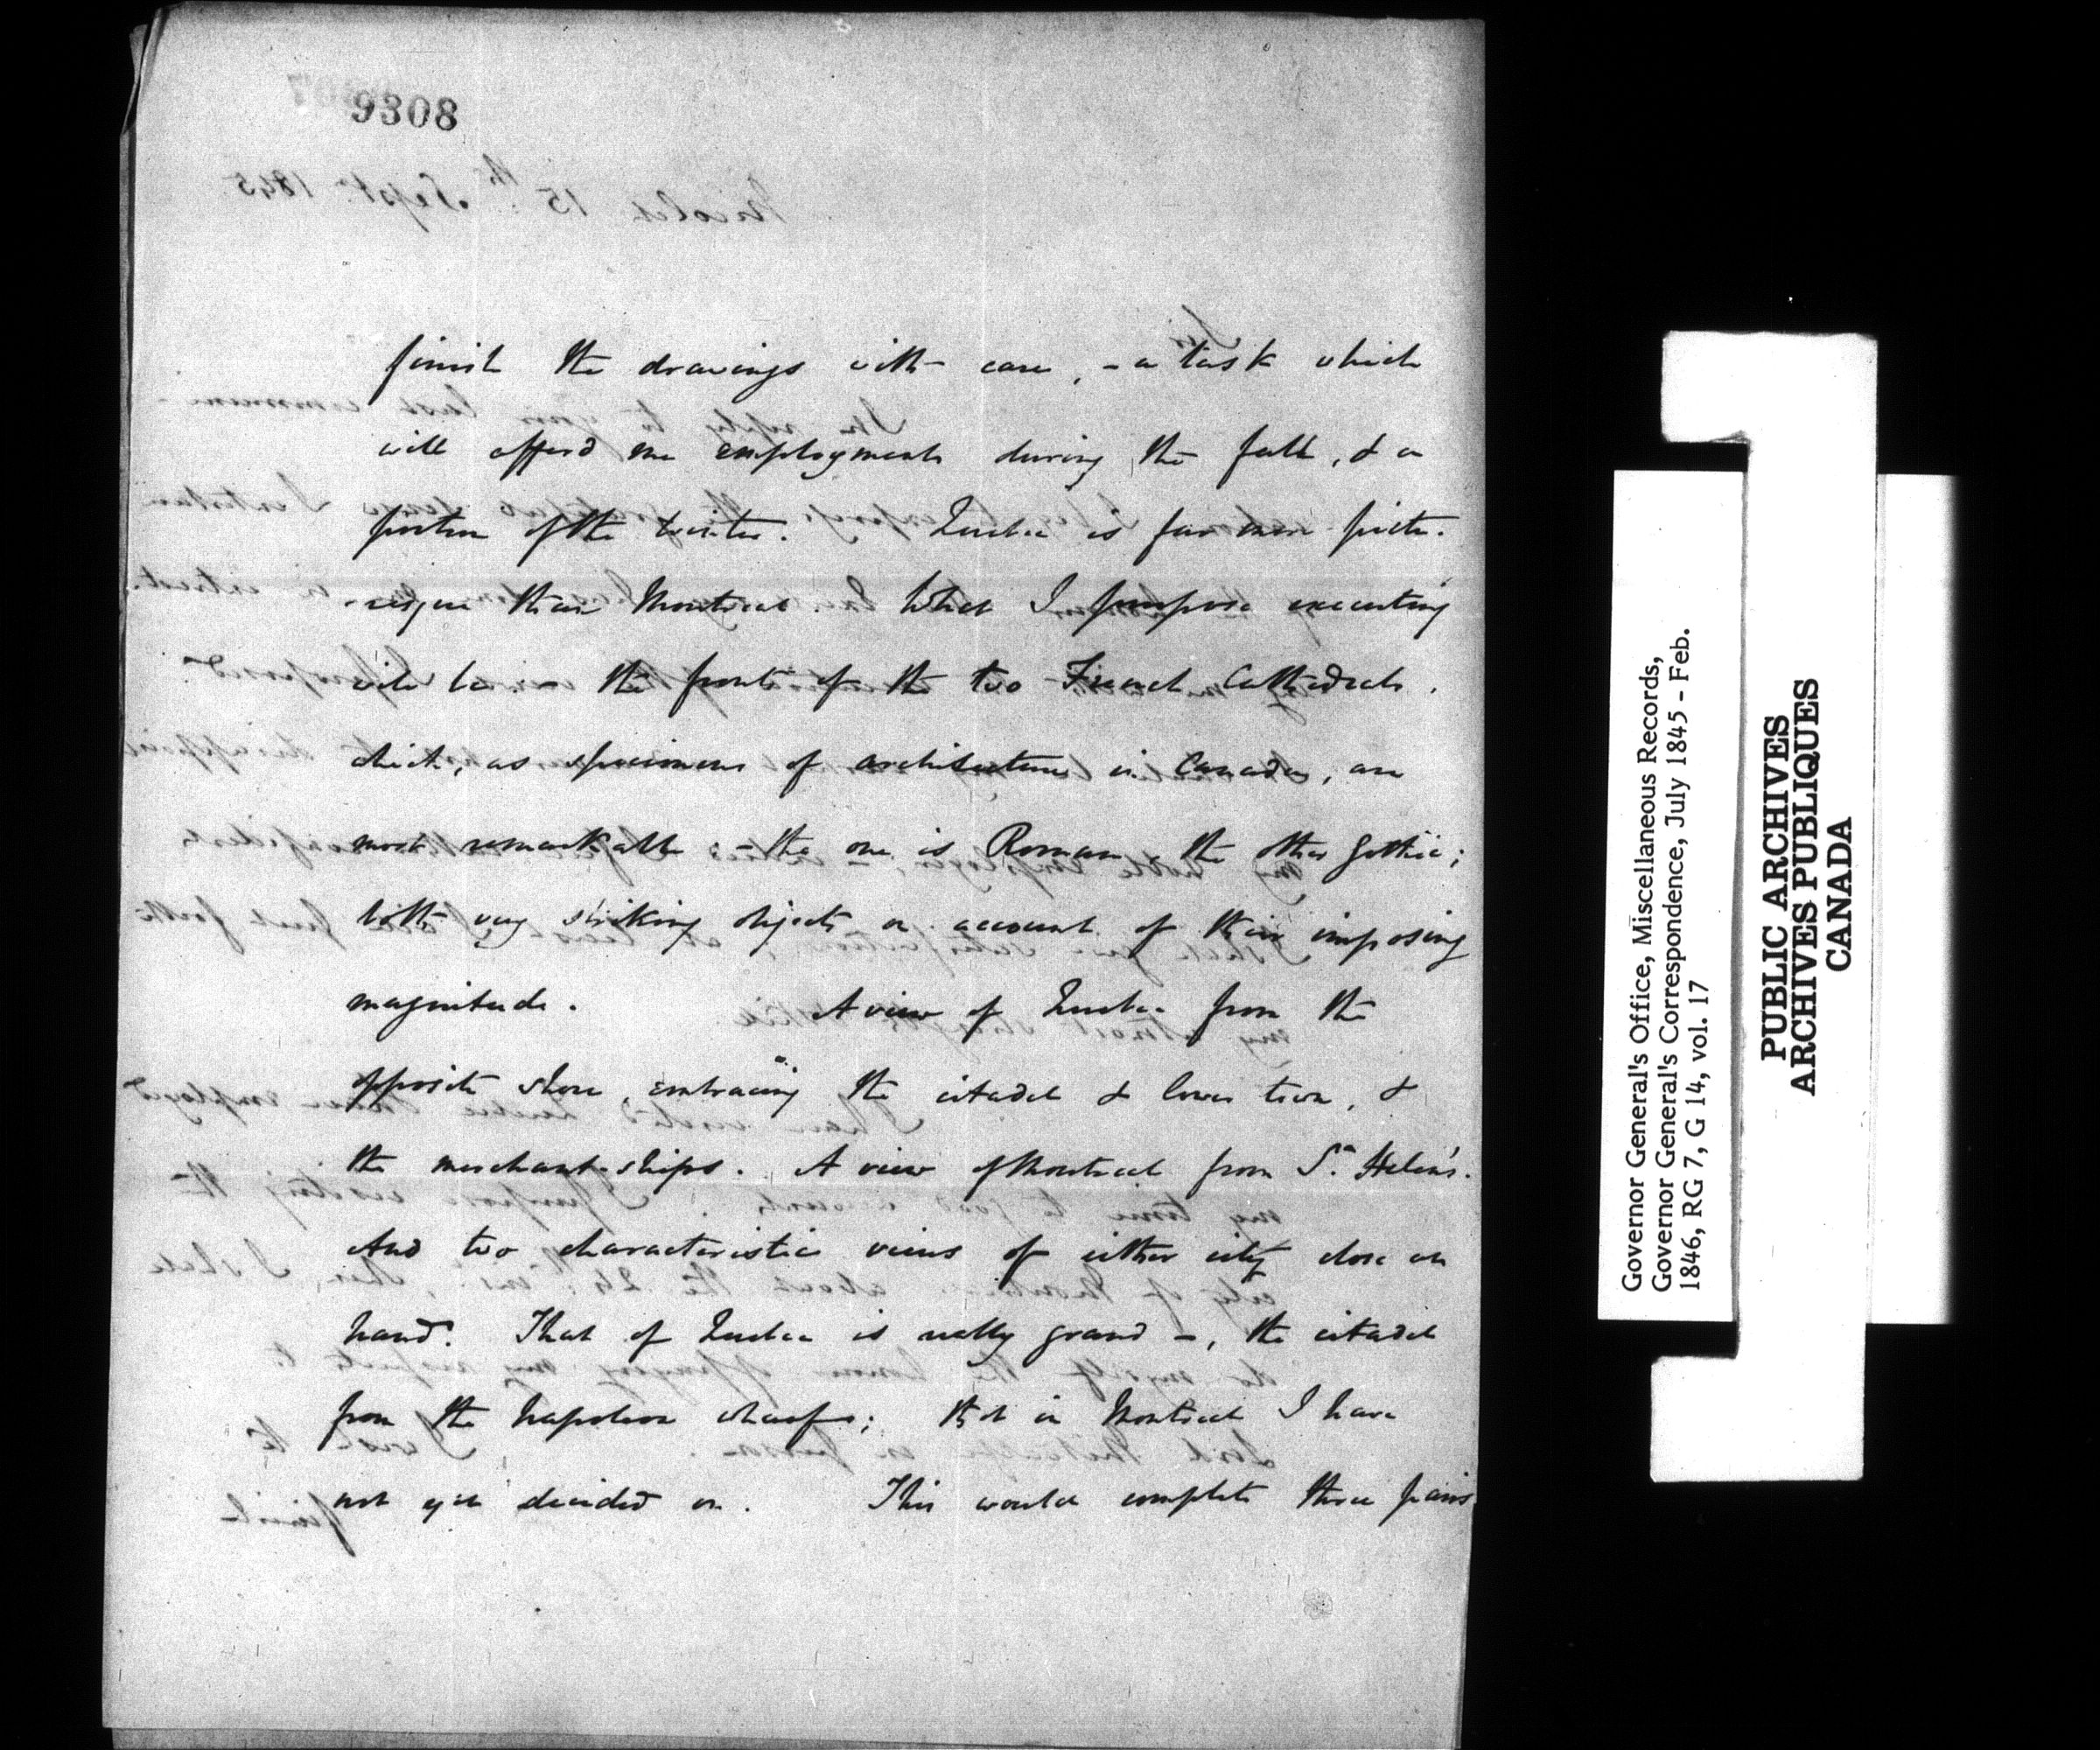 9308
finish the drawings with care, - a task which
will afford me employment during the fall, & a
portion of the winter. Quebec is far more pictu-
-resque than Montreal. What I purpose executing
will be: - the fronts of the two French Cathedrals,
which, as specimens of architecture in Canada, are
most remarkable: - the one is Roman, the other Gothic;
both very striking objects on account of their imposing
magnitude. A view of Quebec from the
opposite shore, embracing the citadel & lower town, &
the merchant-ships. A view of Montreal from St. Helen's.
And two characteristic views of either city close on
hand. That of Quebec is really grand -, the citadel
from the Napoleon wharf; that in Montreal I have
not yet decided on. This would complete three pairs
Governor General's Office, Miscellaneous Records,
Governor General's Correspondence, July 1845 - Feb.
1846, RG 7, G 14, vol. 17
PUBLIC ARCHIVES
ARCHIVES PUBLIQUES
CANADA